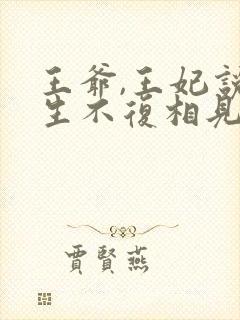 王爺,王妃說
生不復相見
賈賢燕